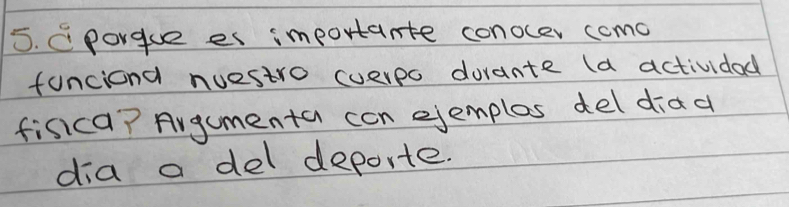 5. ¿porque es importante conocer como
funciona nuestro cuerpo durante la actividad
fisica? Argumenta con ejemplos del dia a
dia o del deporte.